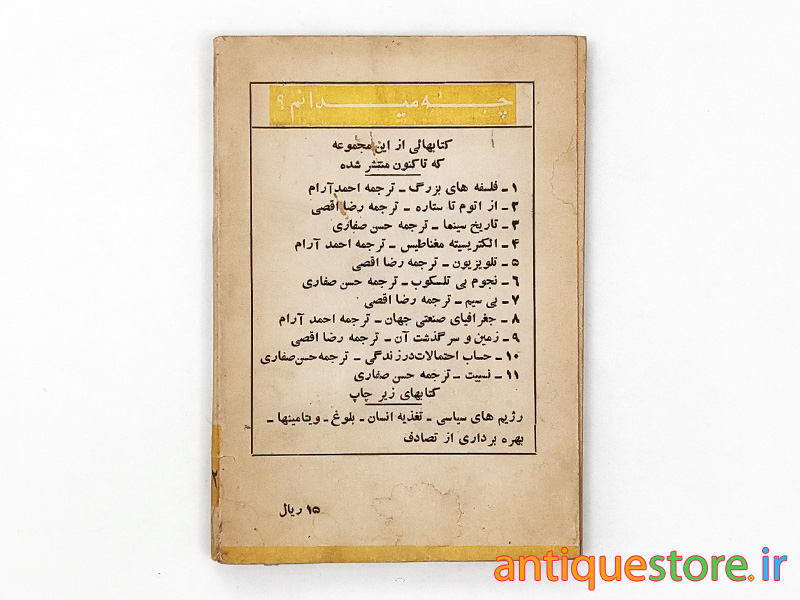 چه میدانم؟
کتابهائی از این مجموعه
که تاکنون منتشر شده
۱ - فلسفه های بزرگ - ترجمه احمد آرام
۲ - از اتوم تا ستاره - ترجمه رضا اقصی
۳ - تاریخ سینما - ترجمه حسن صفاری
۴ - الکتریسیته مغناطیس - ترجمه احمد آرام
۵ - تلویزیون - ترجمه رضا اقصی
۶ - نجوم بی تلسکوپ - ترجمه حسن صفاری
۷ - بی سیم - ترجمه رضا اقصی
۸ - جغرافیای صنعتی جهان - ترجمه احمد آرام
۹ - زمین و سرگذشت آن - ترجمه رضا اقصی
۱۰ - حساب احتمالات در زندگی - ترجمه حسن صفاری
۱۱ - نسبیت - ترجمه حسن صفاری
کتابهای زیر چاپ
رژیم های سیاسی - تغذیه انسان - بلوغ - ویتامینها -
بهره برداری از تصادف
۱۵ ریال
antiquestore.ir